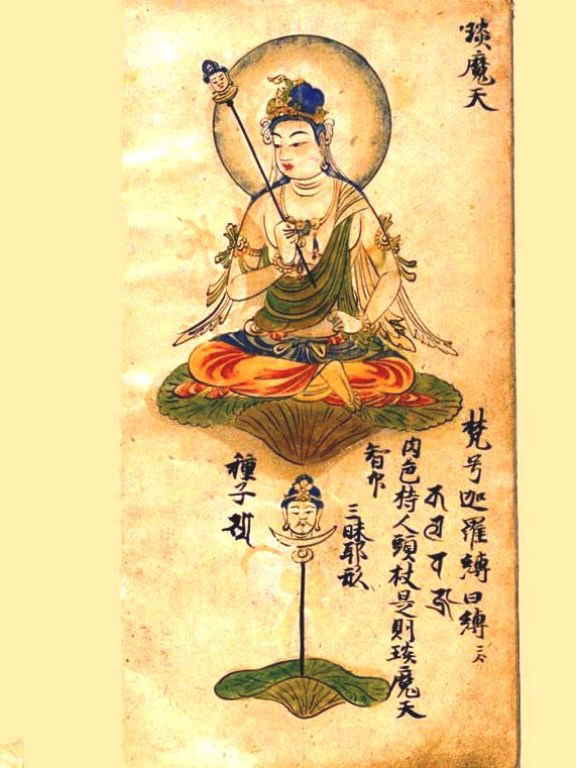 琰魔天
梵号迦羅縛日縛
肉色持人頭杖是則琰魔天
三昧耶形
種子